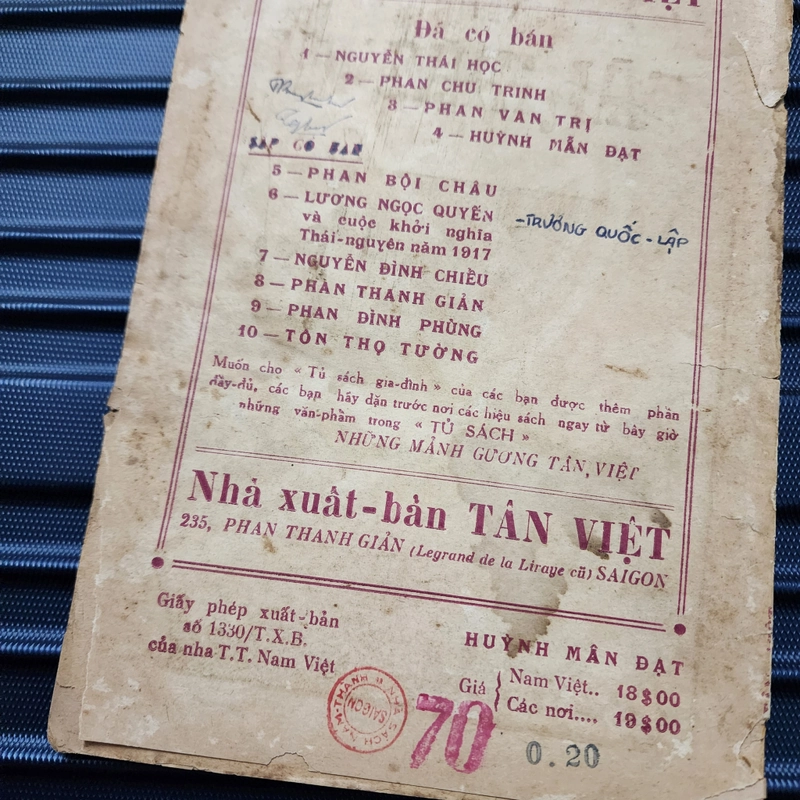 VIỆT
Đã có bán
1 — NGUYỄN THÁI HỌC
2 — PHAN CHU TRINH
3 — PHAN VAN TRỊ
4 — HUỲNH MẪN ĐẠT
SẮP CÓ BÁN
5 — PHAN BỘI CHÂU
6 — LƯƠNG NGỌC QUYẾN
và cuộc khởi nghĩa
Thái-nguyên năm 1917
- TRƯƠNG QUỐC - LẬP
7 — NGUYỄN ĐÌNH CHIỀU
8 — PHAN THANH GIẢN
9 — PHAN ĐÌNH PHÙNG
10 — TÔN THỌ TƯỜNG
Muốn cho « Tủ sách gia-đình » của các bạn được thêm phần
đầy-đủ, các bạn hãy dặn trước nơi các hiệu sách ngay từ bây giờ
những văn-phẩm trong « TỦ SÁCH »
NHỮNG MẢNH GƯƠNG TÂN VIỆT
Nhà xuất-bản TÂN VIỆT
235, PHAN THANH GIẢN (Legrand de la Liraye cũ) SAIGON
Giấy phép xuất-bản
số 1330/T.X.B.
của nha T.T. Nam Việt
HUỲNH MẪN ĐẠT
Giá { Nam Việt.. 18$00
Các nơi.... 19$00
NHÀ SÁCH NAM-THANH
SAIGON
70
0.20